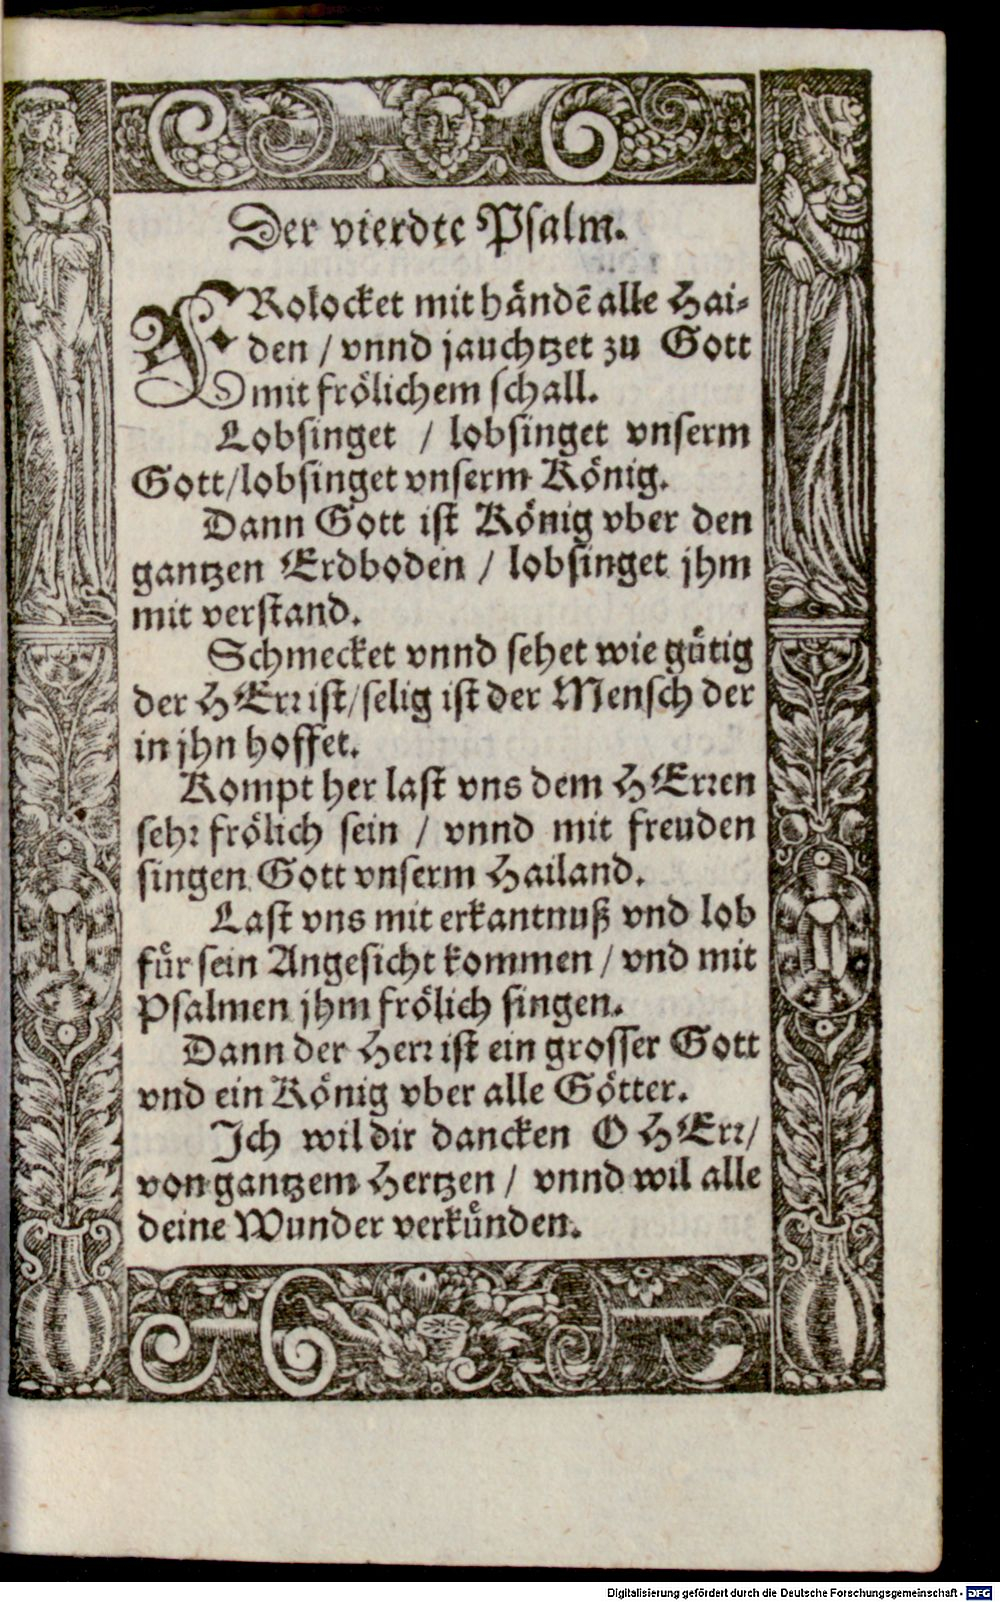 Der vierdte Psalm.
FRolocket mit händē alle Hai-
den / vnnd jauchtzet zu Gott
mit frölichem schall.
Lobsinget / lobsinget vnserm
Gott/lobsinget vnserm König.
Dann Gott ist König vber den
gantzen Erdboden / lobsinget jhm
mit verstand.
Schmecket vnnd sehet wie gütig
der HErr ist/selig ist der Mensch der
in jhn hoffet.
Kompt her last vns dem HErren
sehr frölich sein / vnnd mit freuden
singen Gott vnserm Hailand.
Last vns mit erkantnuß vnd lob
für sein Angesicht kommen / vnd mit
Psalmen jhm frölich singen.
Dann der Herr ist ein grosser Gott
vnd ein König vber alle Götter.
Ich wil dir dancken O HErr/
von gantzem Hertzen / vnnd wil alle
deine Wunder verkünden.
Digitalisierung gefördert durch die Deutsche Forschungsgemeinschaft - DFG